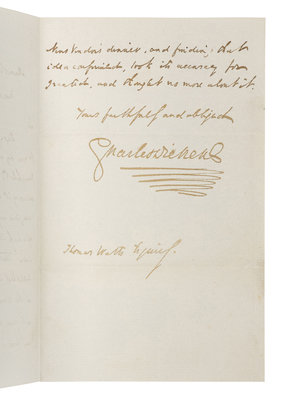 dinner, and finding that
idea confirmed, took its accuracy for
granted, and thought no more about it.
Yours faithfully and obliged
Charles Dickens
Thomas Watts Esquire.